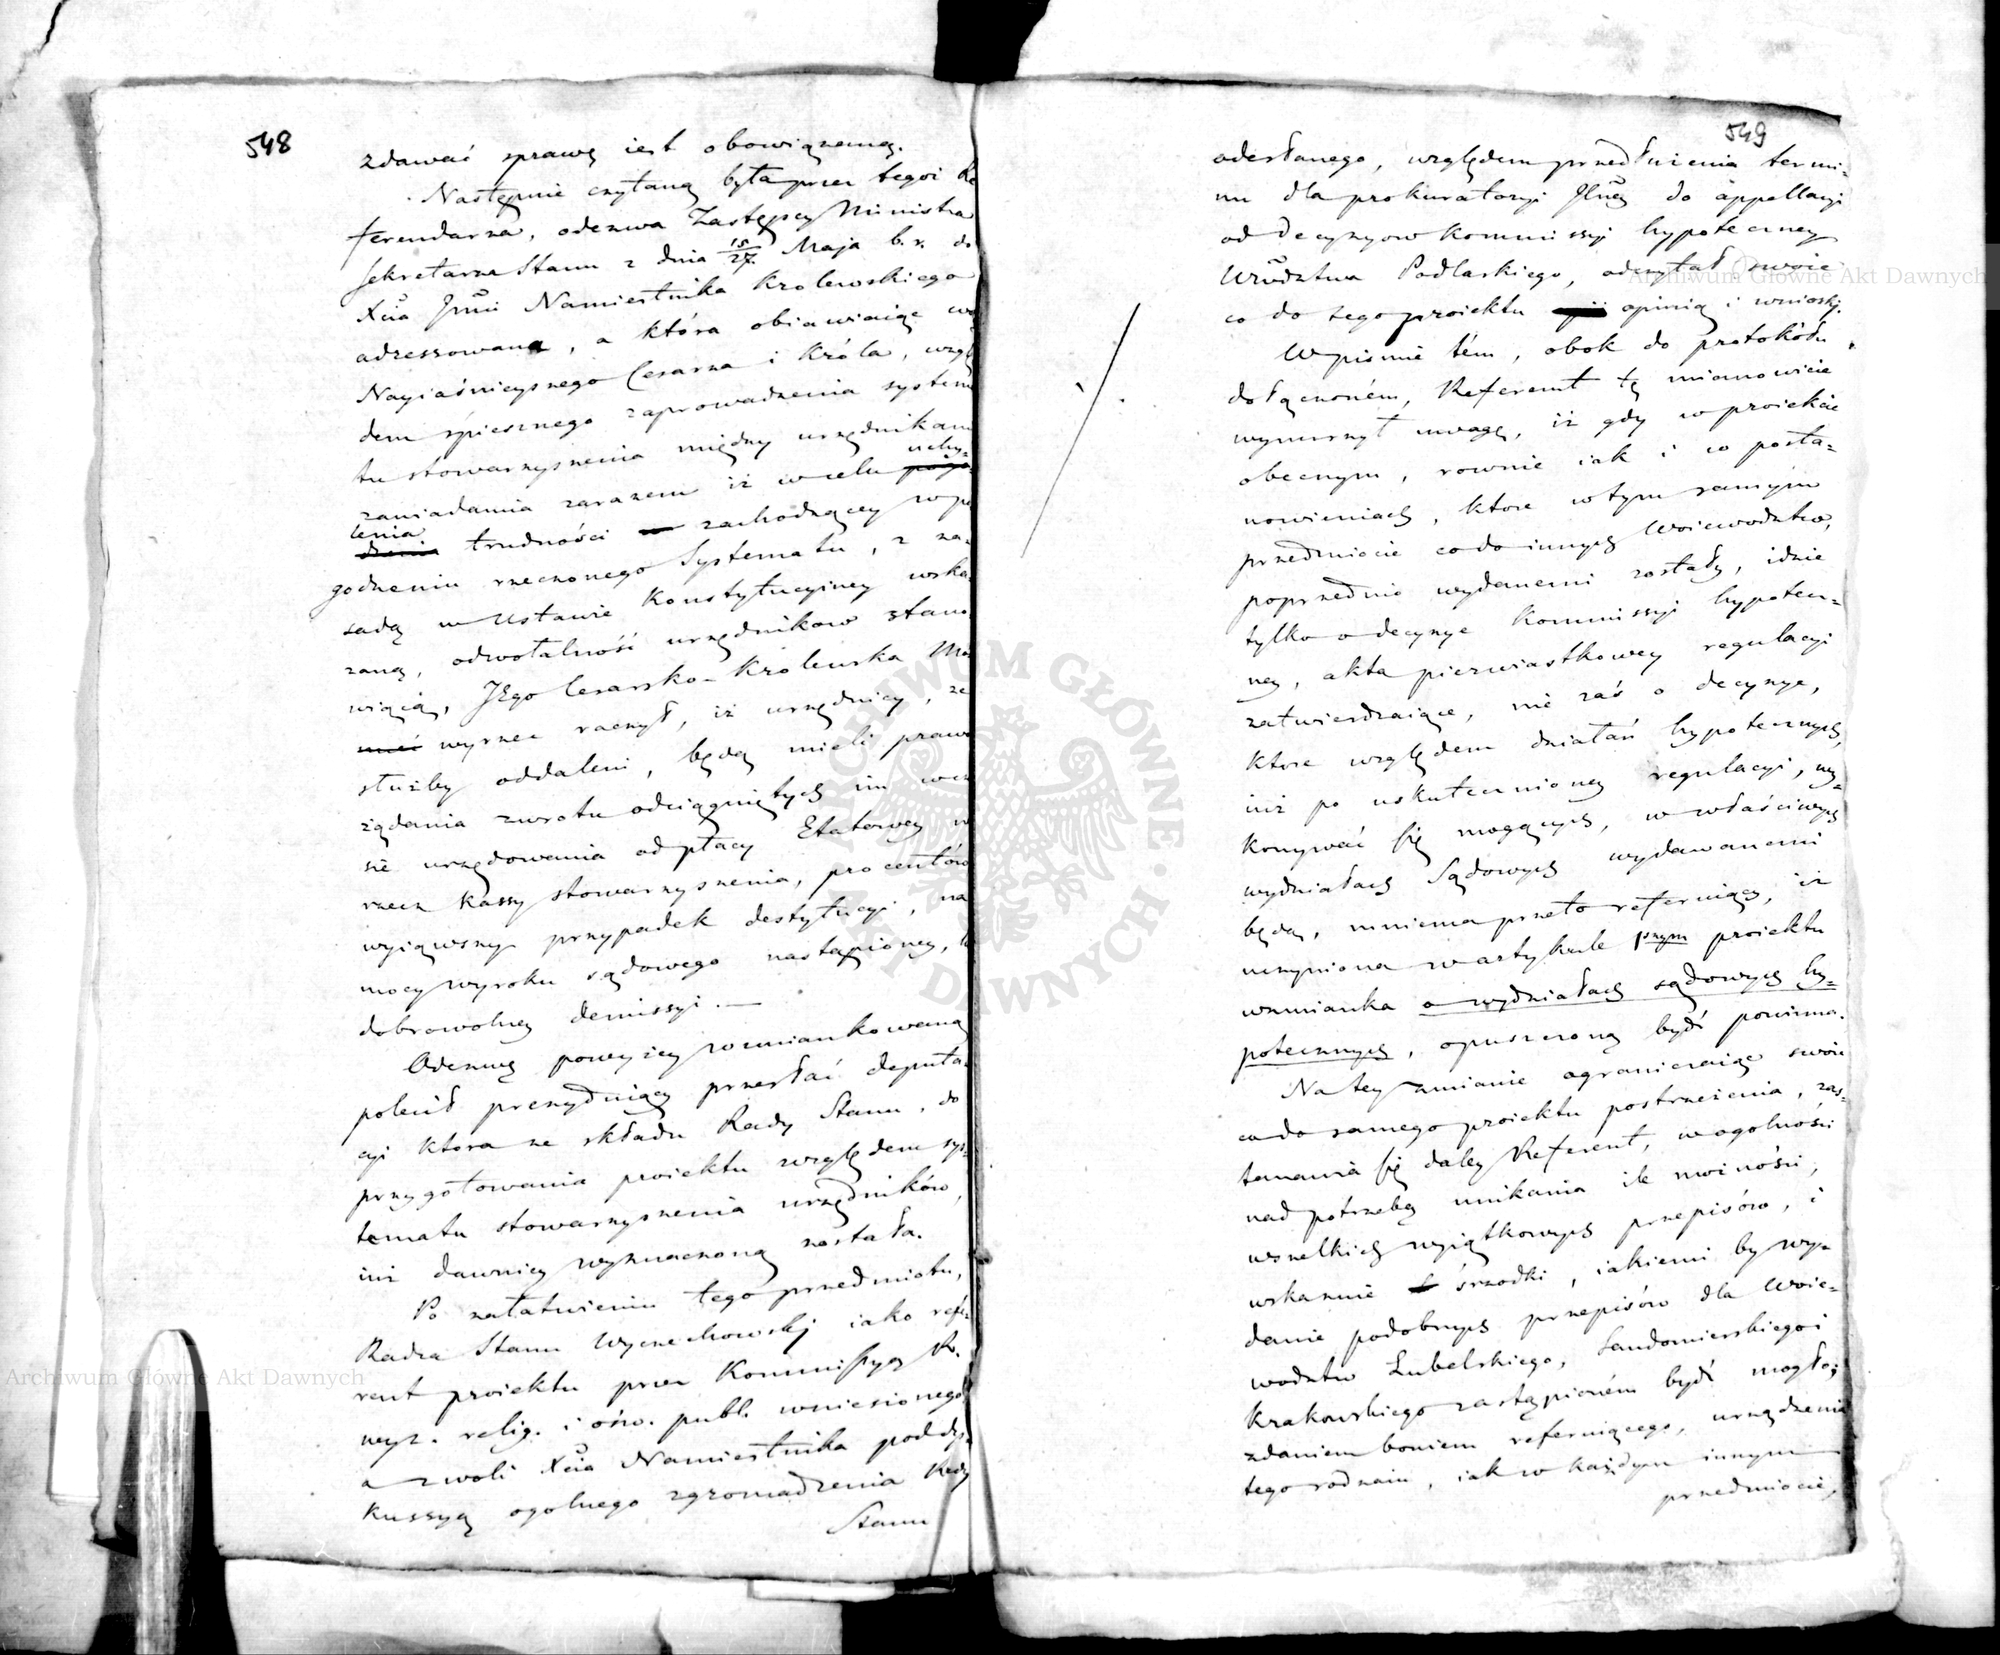 548
zdawać sprawę iest obowiązaną.
Następnie czytaną była przez tegoż Re
ferendarza, odezwa Zastępcy Ministra
Sekretarza Stanu z dnia 15/27 Maja b. r. do
Xcia Jmci Namiestnika Krolewskiego
adressowana, a która obiawiaiąc wo
Nayiaśnieyszego Cesarza i Króla, wzglę
dem śpiesznego zaprowadzenia system
tu stowarzyszenia między urzędnikam
zawiadamia zarazem iż w celu uchy-
lenia trudności zachodzącey w po
godzeniu rzeczonego Systematu, z za-
sadą w Ustawie Konstytucyiney wska-
zaną, odwołalność urzędnikow stano
wiącą, Jego Cesarsko-Krolewska Mo
wyrzec raczył, iż urzędnicy, ze
służby oddaleni, będą mieli prawo
żądania zwrotu odciągniętych im w cza
sie urzędowania od płacy Etatowey w
rzecz Kassy stowarzyszenia, procentów
wyiąwszy przypadek destytucyi, na
mocy wyroku sądowego nastąpioney, lu
dobrowolney demissyi. —
Odezwę powyżey wzmiankowaną
polecił prezyduiący przesłać deputa-
cyi ktora ze składu Rady Stanu, do
przygotowania proiektu względem sys-
tematu stowarzyszenia urzędników,
iuż dawniey wyznaczoną została.
Po załatwieniu tego przedmiotu,
Radca Stanu Wyczechowski iako refe-
rent proiektu przez Kommissyą R.
wyz. relig. i ośw. publ. wniesionego
a z woli Xcia Namiestnika pod dys-
kussyą ogolnego zgromadzenia Rady
Stanu
549
odesłanego, względem przedłużenia termi-
nu dla prokuratoryi Jlney do appellacyi
od decyzyow Kommissyi hypoteczney
Wdztwa Podlaskiego, odczytał swoie
co do tego proiektu opinią i wnioski.
W piśmie tém, obok do protokółu
dołączoném, Referent tę mianowicie
wynurzył uwagę, iż gdy w proiekcie
obecnym, rownie iak i w posta-
nowieniach, ktore w tym samym
przedmiocie co do innych Woiewodztw,
poprzednio wydanemi zostały, idzie
tylko o decyzye Kommissyi hypotecz-
ney, akta pierwiastkowey regulacyi
zatwierdzaiące, nie zaś o decyzye,
ktore względem działań hypotecznych,
iuż po uskutecznioney regulacyi, wy-
konywać się mogących, w właściwych
wydziałach Sądowych wydawanemi
będą, mniema przeto referuiący, iż
uczyniona w artykule 1szym proiektu
wzmianka o wydziałach sądowych hy-
potecznych, opuszczoną bydź powinna.
Na tey zmianie ograniczaiąc swoie
co do samego proiektu postrzeżenia, zas-
tanawia się daley Referent, w ogolności
nad potrzebą unikania ile możności,
wszelkich wyiątkowych przepisów, i
wskazuie śrzodki, iakiemi by wy-
danie podobnych przepisów dla Woie-
wodztw Lubelskiego, Sandomierskiego i
Krakowskiego zastąpioném bydź mogło;
zdaniem bowiem referuiącego, urządzenia
tego rodzaiu, iak w każdym innym
przedmiocie,